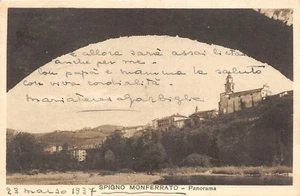 e allora sarà assai lieta
anche per me.
Con papà e mamma la saluto
con viva cordialità.
SPIGNO MONFERRATO - Panorama
23 marzo 1937